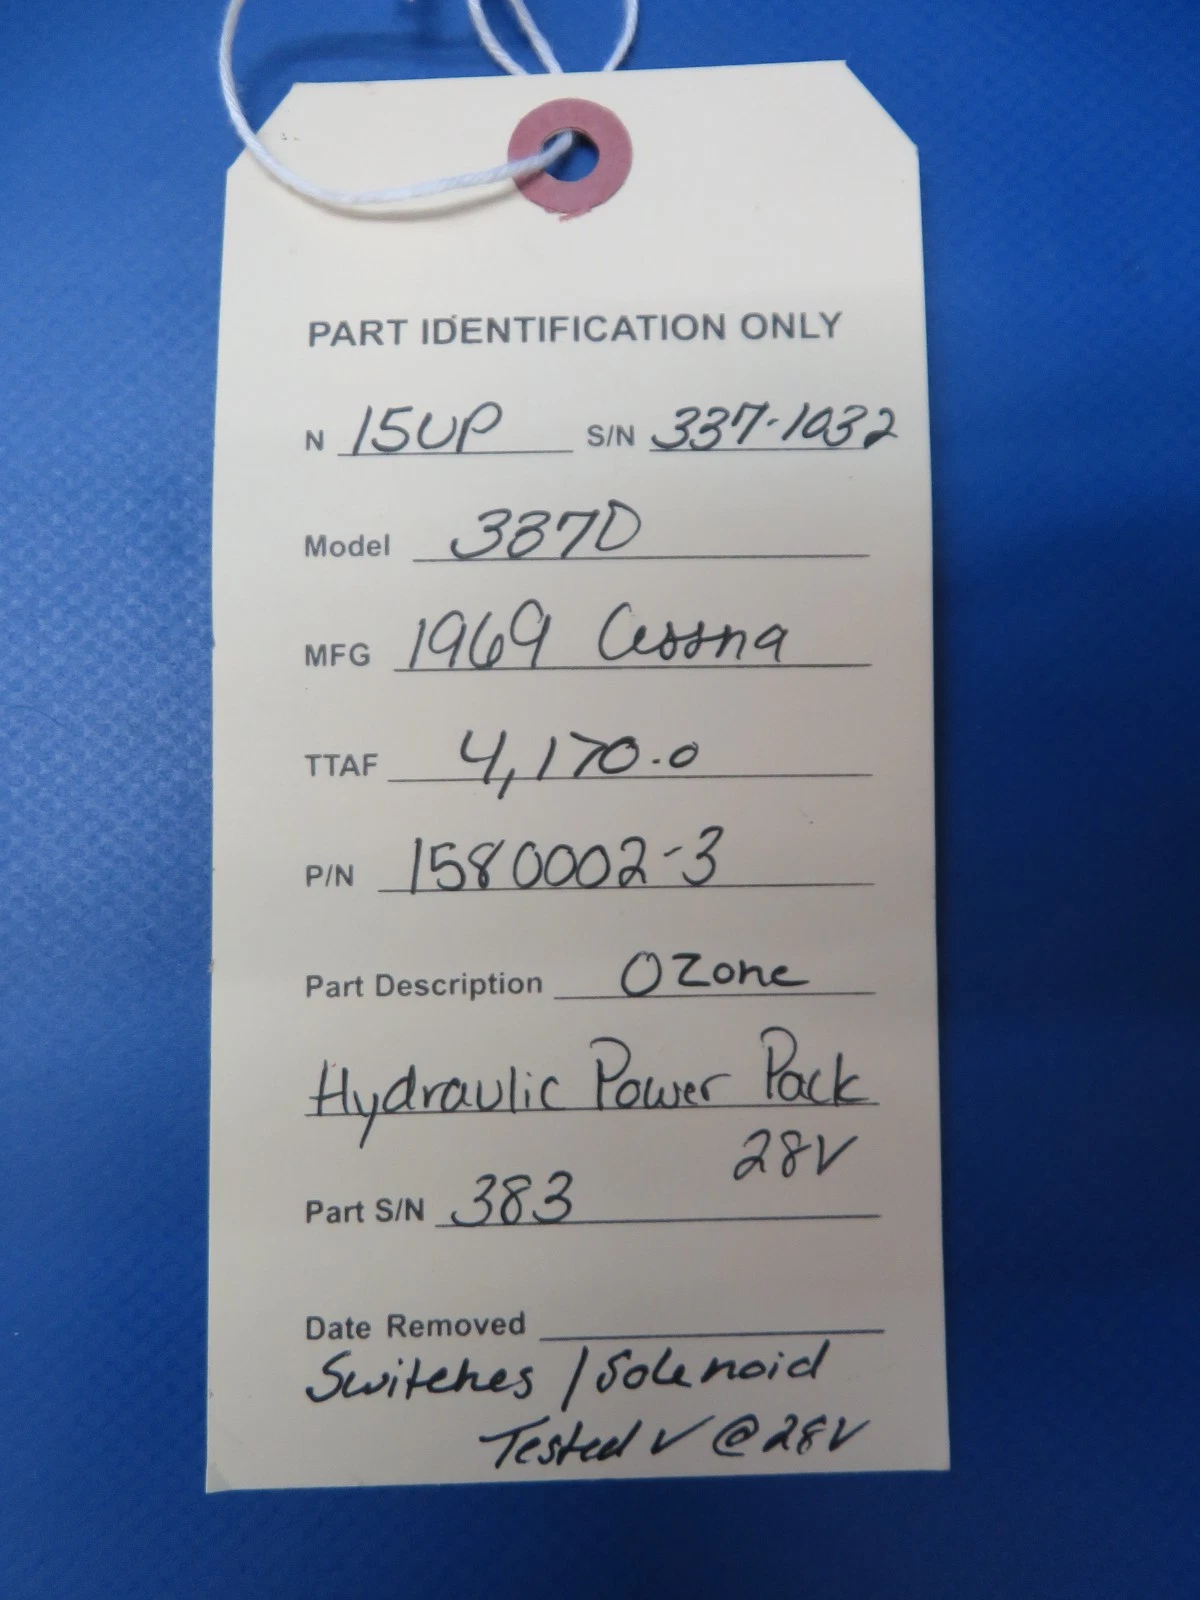 PART IDENTIFICATION ONLY
N 15UP S/N 337-1032
Model 337D
MFG 1969 Cessna
TTAF 4,170.0
P/N 1580002-3
Part Description Ozone
Hydraulic Power Pack
28V
Part S/N 383
Date Removed
Switches / Solenoid
Tested ✓ @ 28V